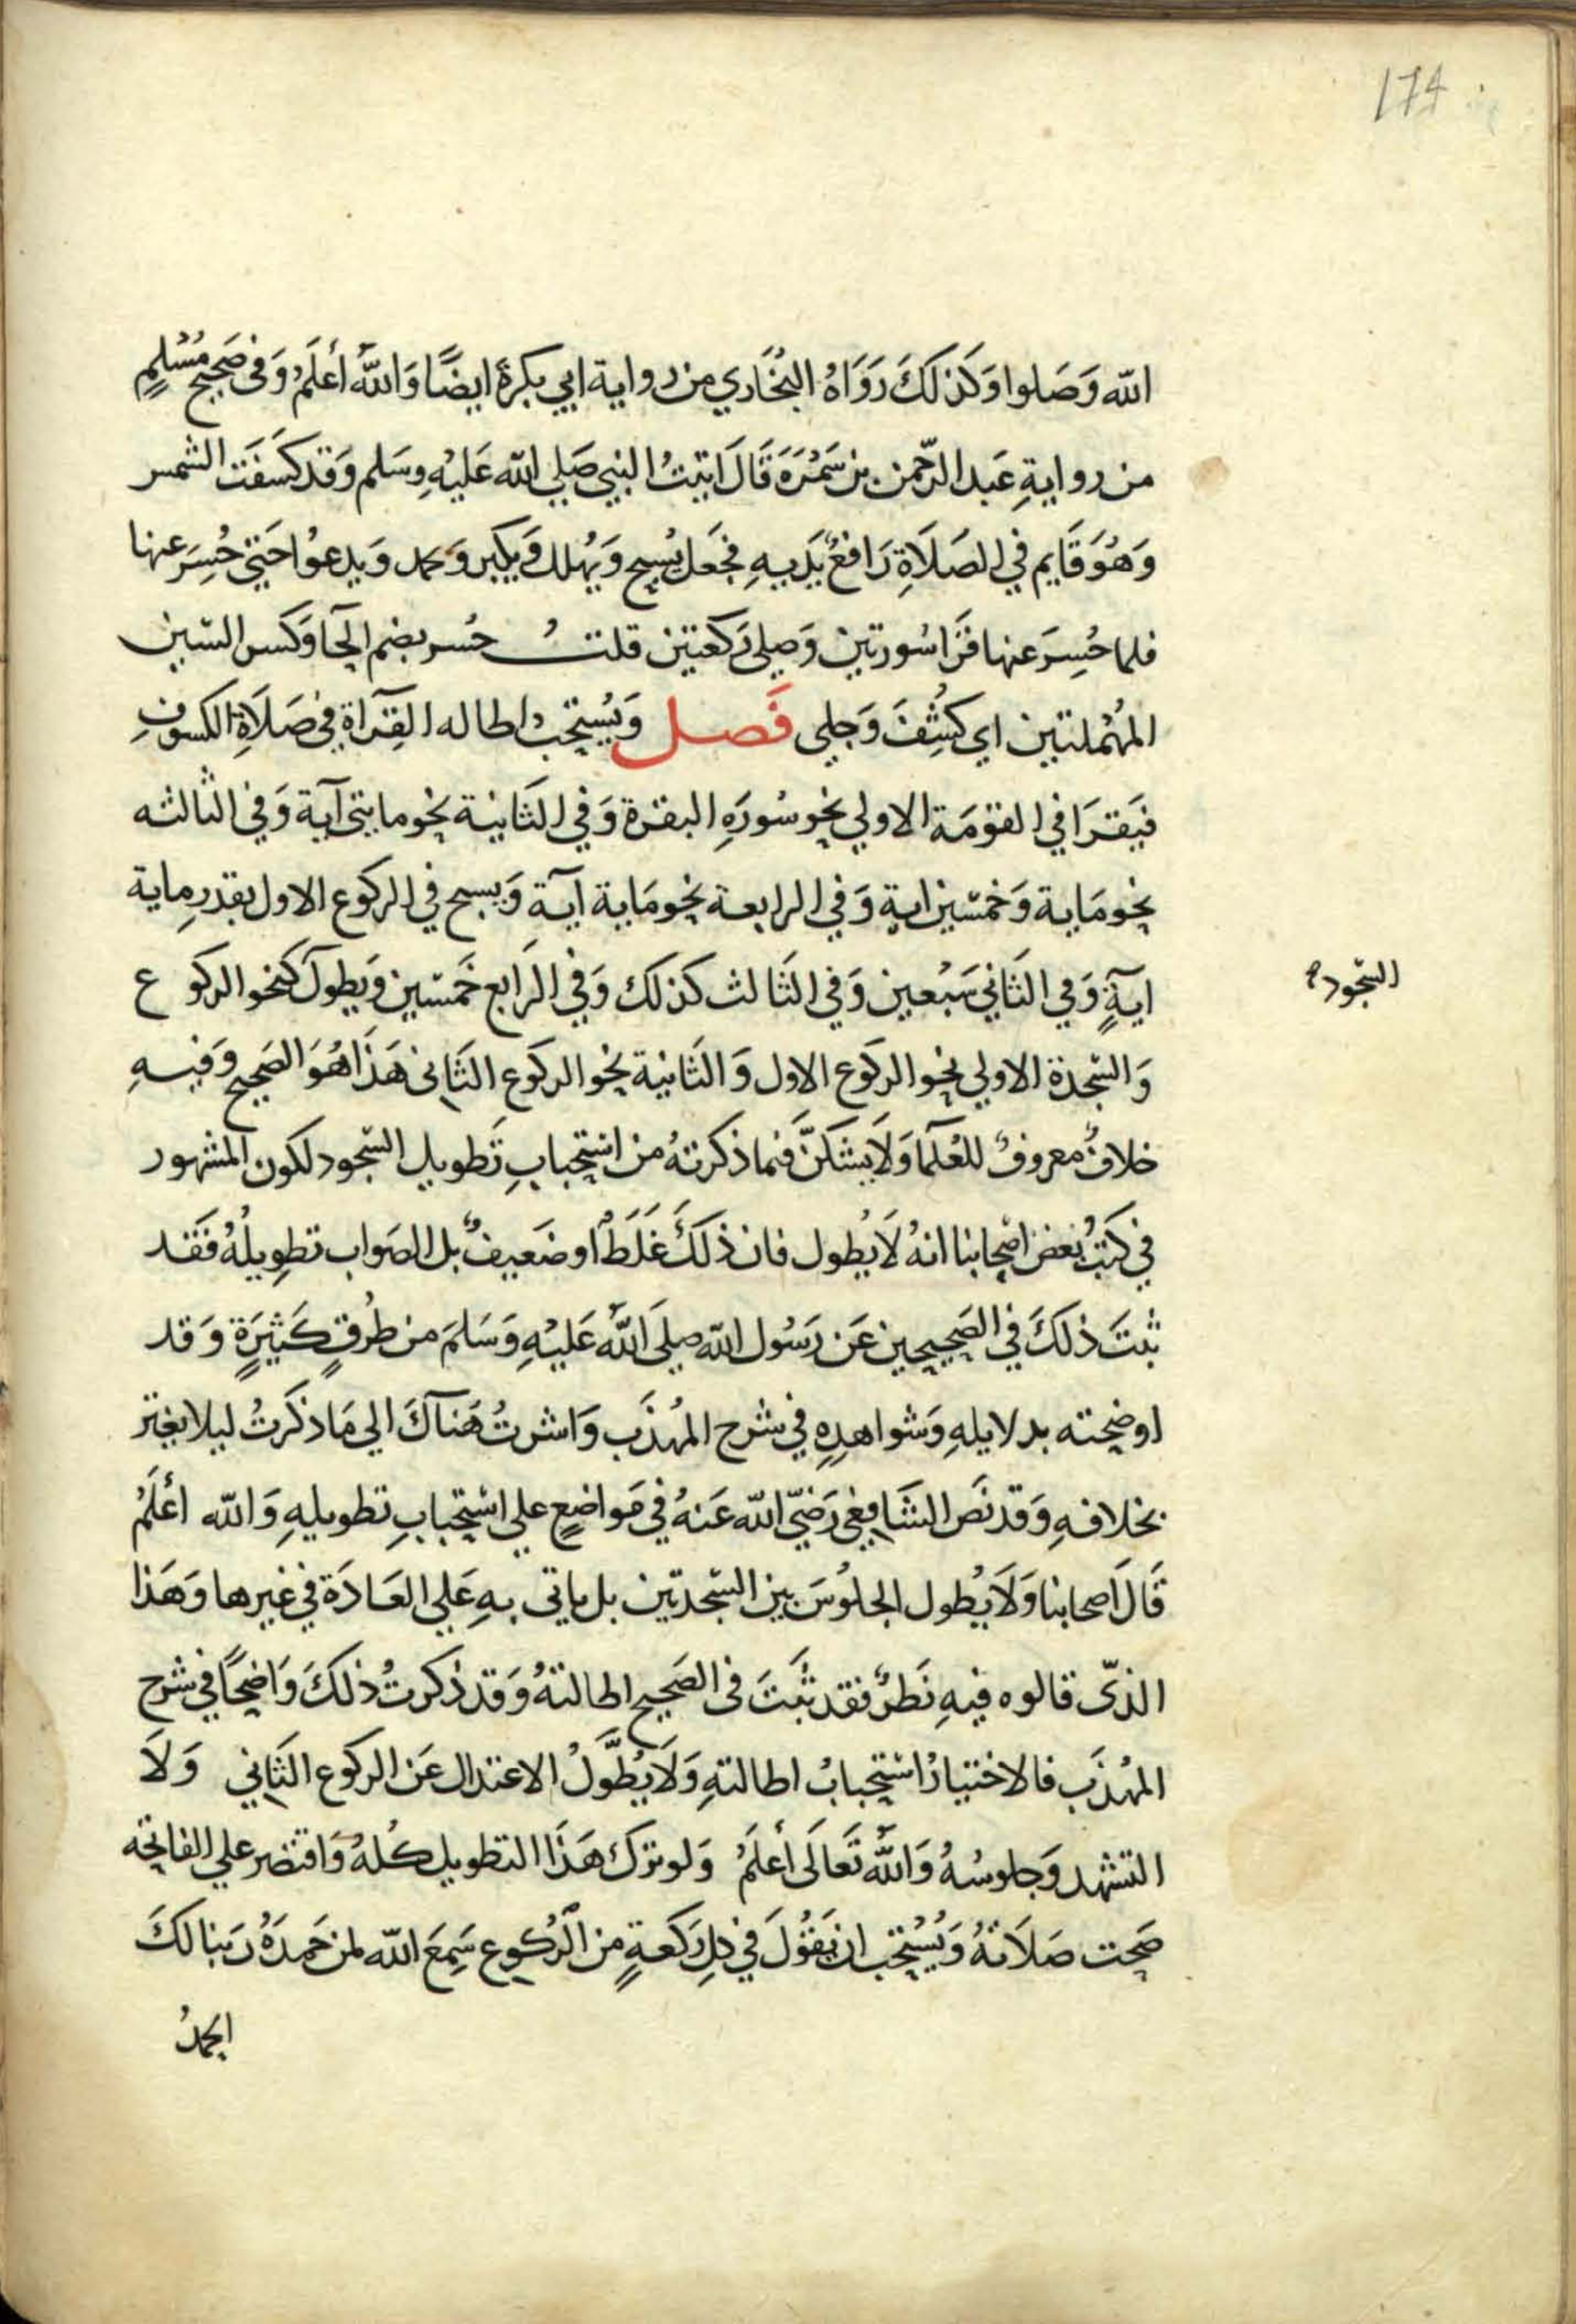 174
الله وَصَلوا وَكَذلكَ رَوَاهُ البُخَاري من رواية ابي بكرة ايضًا وَاللهُ أعلَمُ وَفى صَحيح مُسْلمٍ
من روايةِ عَبد الرّحمن بن سَمُرَةَ قَالَ اتيتُ النبي صَلي الله عَليْهِ وسَلم وَقد كسَفَت الشمس
وَهُوَ قَايم في الصَلَاةِ رَافعٌ يَدَيهِ فجَعَل يُسبح وَيُهلل وَيكبر وَيحمد وَيدعوُا حَتي حُسِرَ عنها
فلما حُسِرَ عنها قرَا سُورتين وَصلي ركعتين قلتُ حُسر بضم الحَا وَكسر السّين
المُهْملتين اي كشُفَ وَجلى فَصل وَيُستحَب اطاله القِرَآاة في صَلَاةِ الكسوُفِ
فيَقرَا في القوْمَة الاولي نحو سُورَهِ البقرة وَفي الثَانية نحو مايتى آية وَفي الثالثه
نحو مَاية وَخمسّين اية وَفي الرابعة نحو مَاية آية وَيسبح في الركوع الاول بقدرِ ماية
ايةٍ وَفي الثَاني سَبْعين وَفي الثَالث كذلك وَفي الرَابع خَمسّين وَيطولَ كنحو الركوع
السّجود
وَالسّجدة الاولي نحو الركوع الاول وَالثَانية نحو الركوع الثَانى هَذَا هُوَ الصَحيح وَفيهِ
خلافٌ معروفٌ للعُلَمآ وَلَا يَشكنَّ فيما ذكرتهُ من اسْتحبابِ تَطويل السّجود لكون المشهور
في كتبُ بعض اصْحابنا انهُ لَا يُطول فان ذلَكَ غَلَطٌ او ضَعيفٌ بل الصَواب تطِويلُهُ فَقد
ثبتَ ذلكَ في الصَحيحين عَن رَسُول الله صلَى اللهُ عَليْهِ وَسَلمَ من طُرقٍ كَثيرَةٍ وَقد
اوضحته بدلايلهِ وَشواهدِهِ في شرح المُهذَب وَاشرتُ هَنآكَ الي مَا ذكرتُ ليلا يغتر
بخلافهِ وَقد نَص الشَافعي رَضيّ الله عَنهُ في مَواضعٍ علي اسْتحبابِ تطويلهِ وَالله أعلَمُ
قَالَ اصحابنا وَلَا يُطول الجلوُسَ بين السّجدتين بل ياتى بهِ عَلي العَادَة في غيرها وَهَذا
الذّى قالوه فيهِ نَظرٌ فقد ثبَتَ فى الصَحيح اطالتهُ وَقد ذكرتُ ذلكَ وَاضحًا في شرح
المهُذَب فالاختيارُ اسْتحبابُ اطالتهِ وَلَا يُطَّولُ الاعتدال عَن الركوع الثَاني وَلَا
التشهد وَجلوسُهُ وَاللهُ تَعَالَى أعلَمُ وَلو ترَكَ هَذَا التطويل كُلهُ وَاقتصر علي الفاتحة
صَحت صَلَاتهُ وَيُسْتحَب ان يَقوُلَ في كلِ رَكعَةٍ من الرُكوع سَمِعَ الله لمن حَمدَهُ رَبنا لكَ
الحمدُ